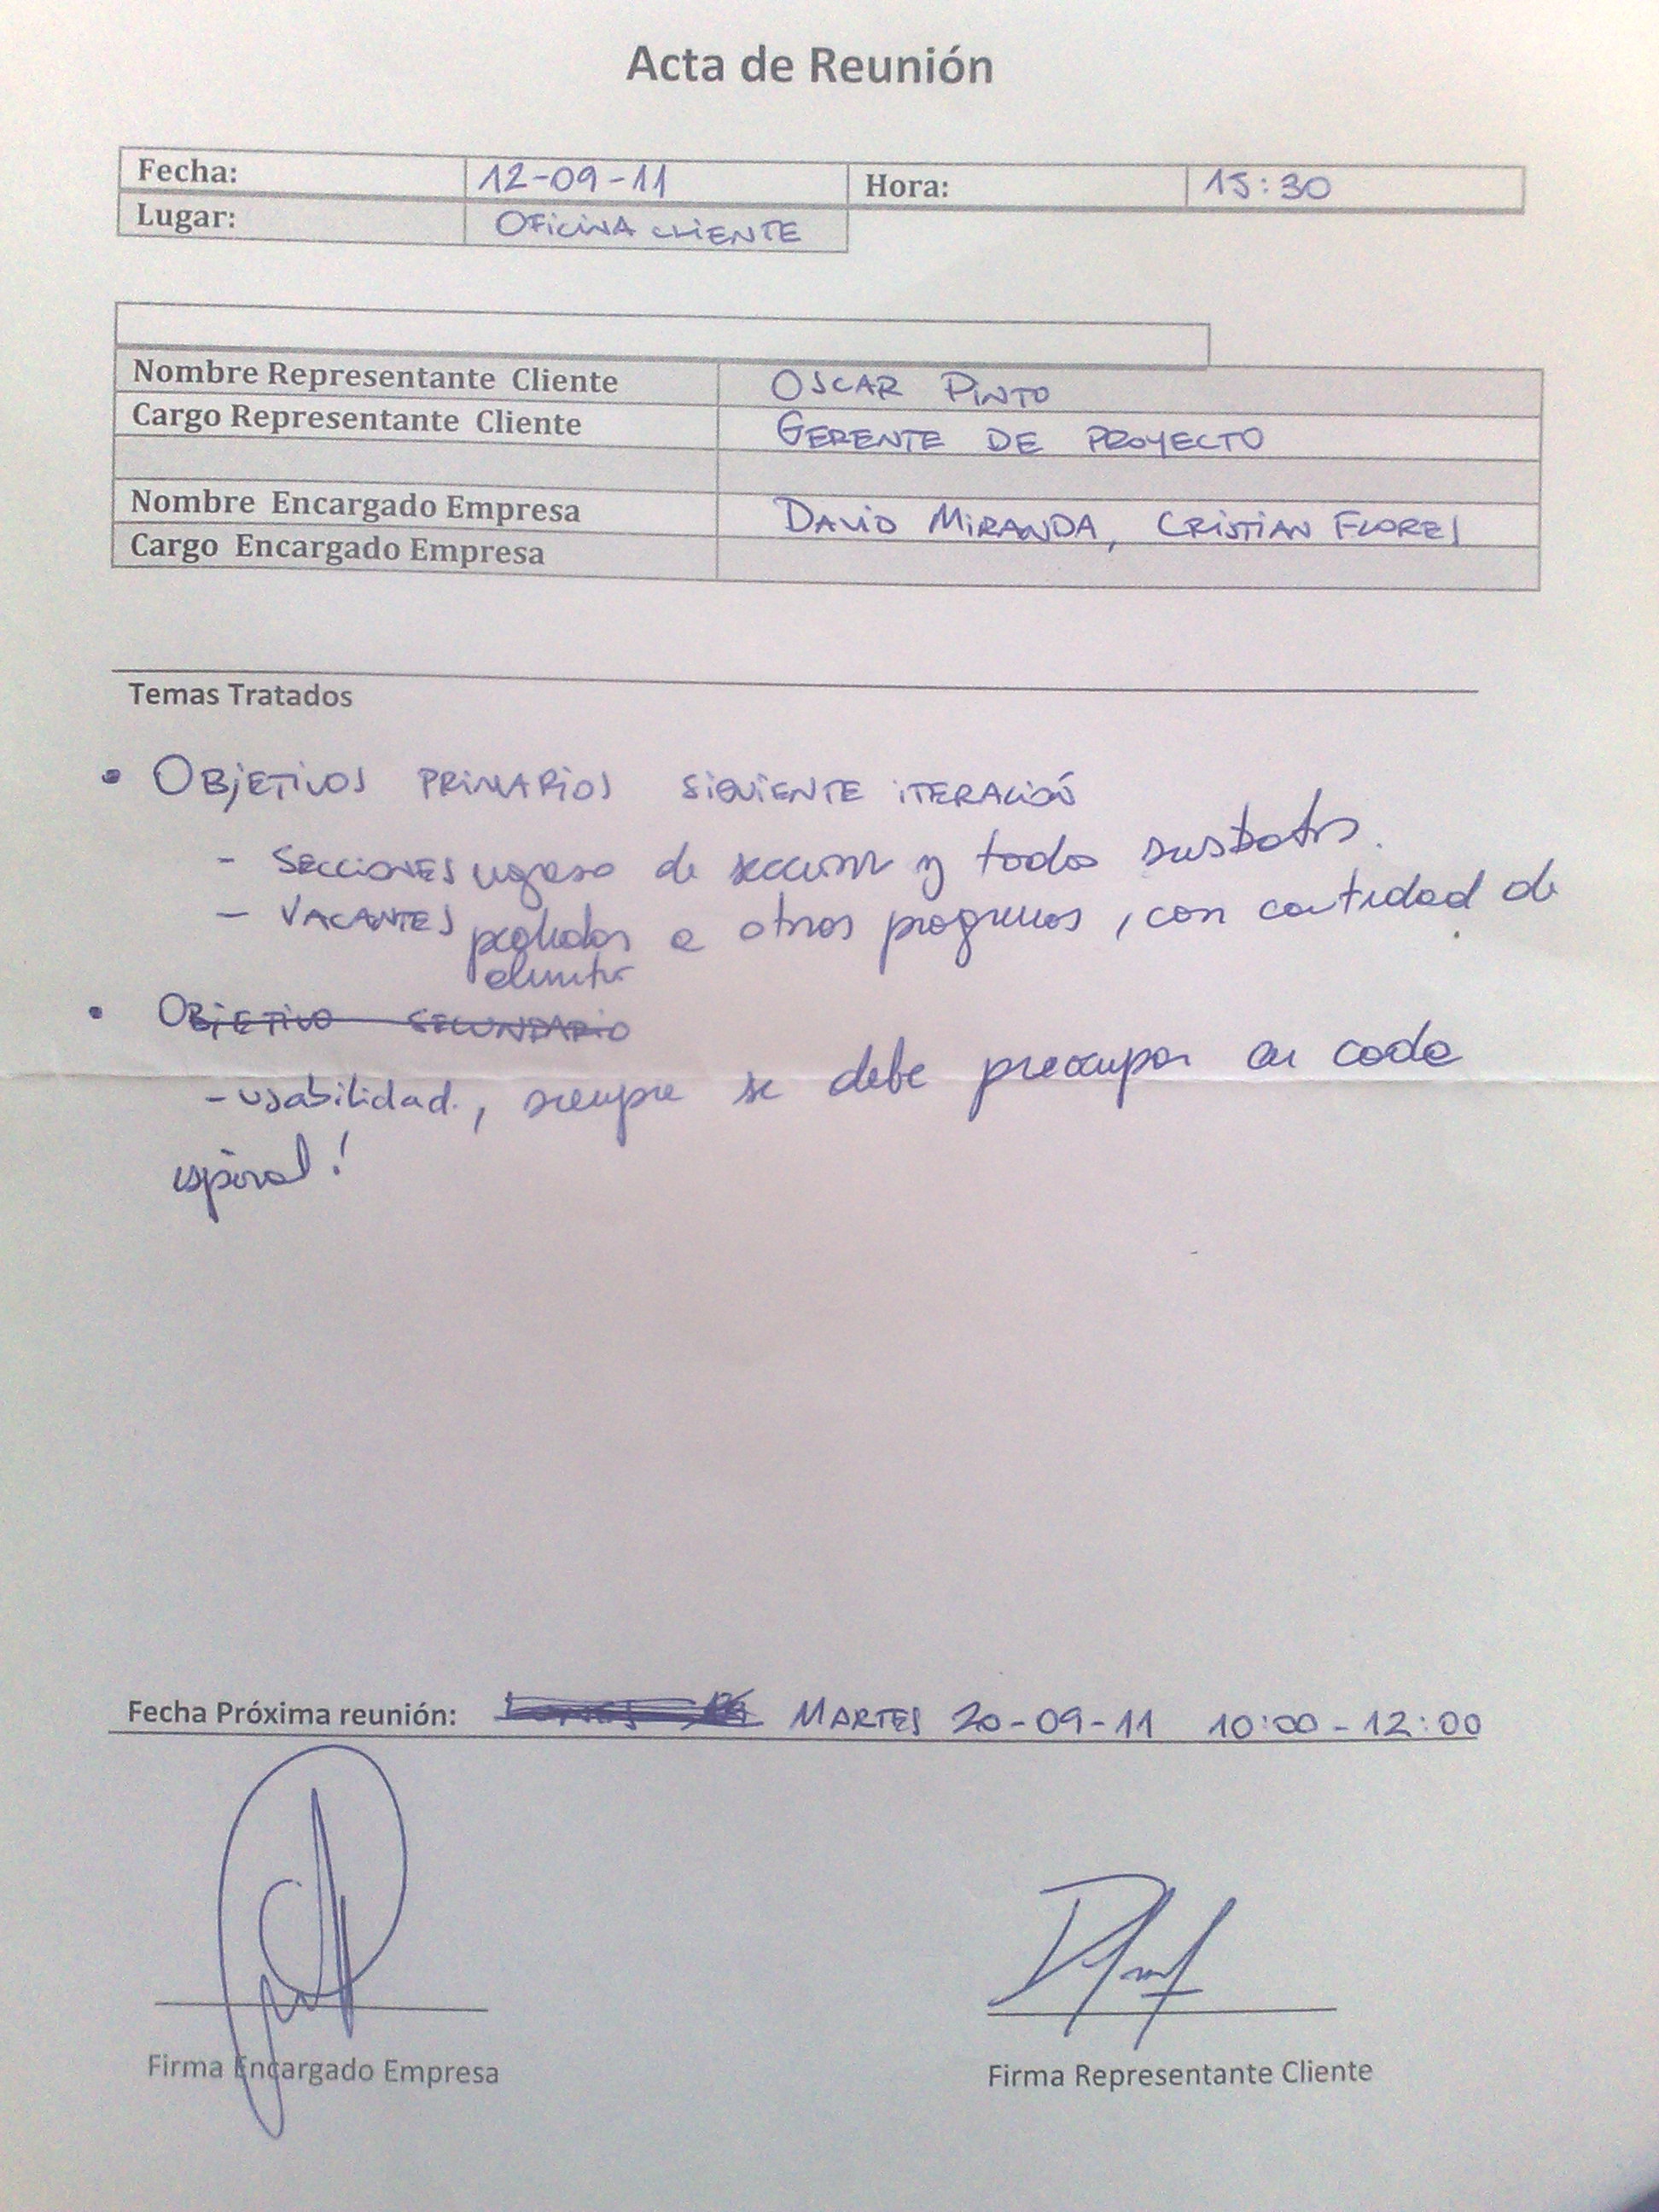 Acta de Reunión
Fecha: 12-09-11 Hora: 15:30
Lugar: OFICINA CLIENTE
Nombre Representante Cliente OSCAR PINTO
Cargo Representante Cliente GERENTE DE PROYECTO
Nombre Encargado Empresa DAVID MIRANDA, CRISTIAN FLORES
Cargo Encargado Empresa
Temas Tratados
• OBJETIVOS PRIMARIOS SIGUIENTE ITERACIÓN
- SECCIONES ingreso de seccion y todos sus datos.
- VACANTES a otros programas, con cantidad de
• OBJETIVO SECUNDARIO
- usabilidad, siempre se debe preocupar en cada
espiral!
Fecha Próxima reunión: MARTES 20-09-11 10:00-12:00
Firma Encargado Empresa Firma Representante Cliente